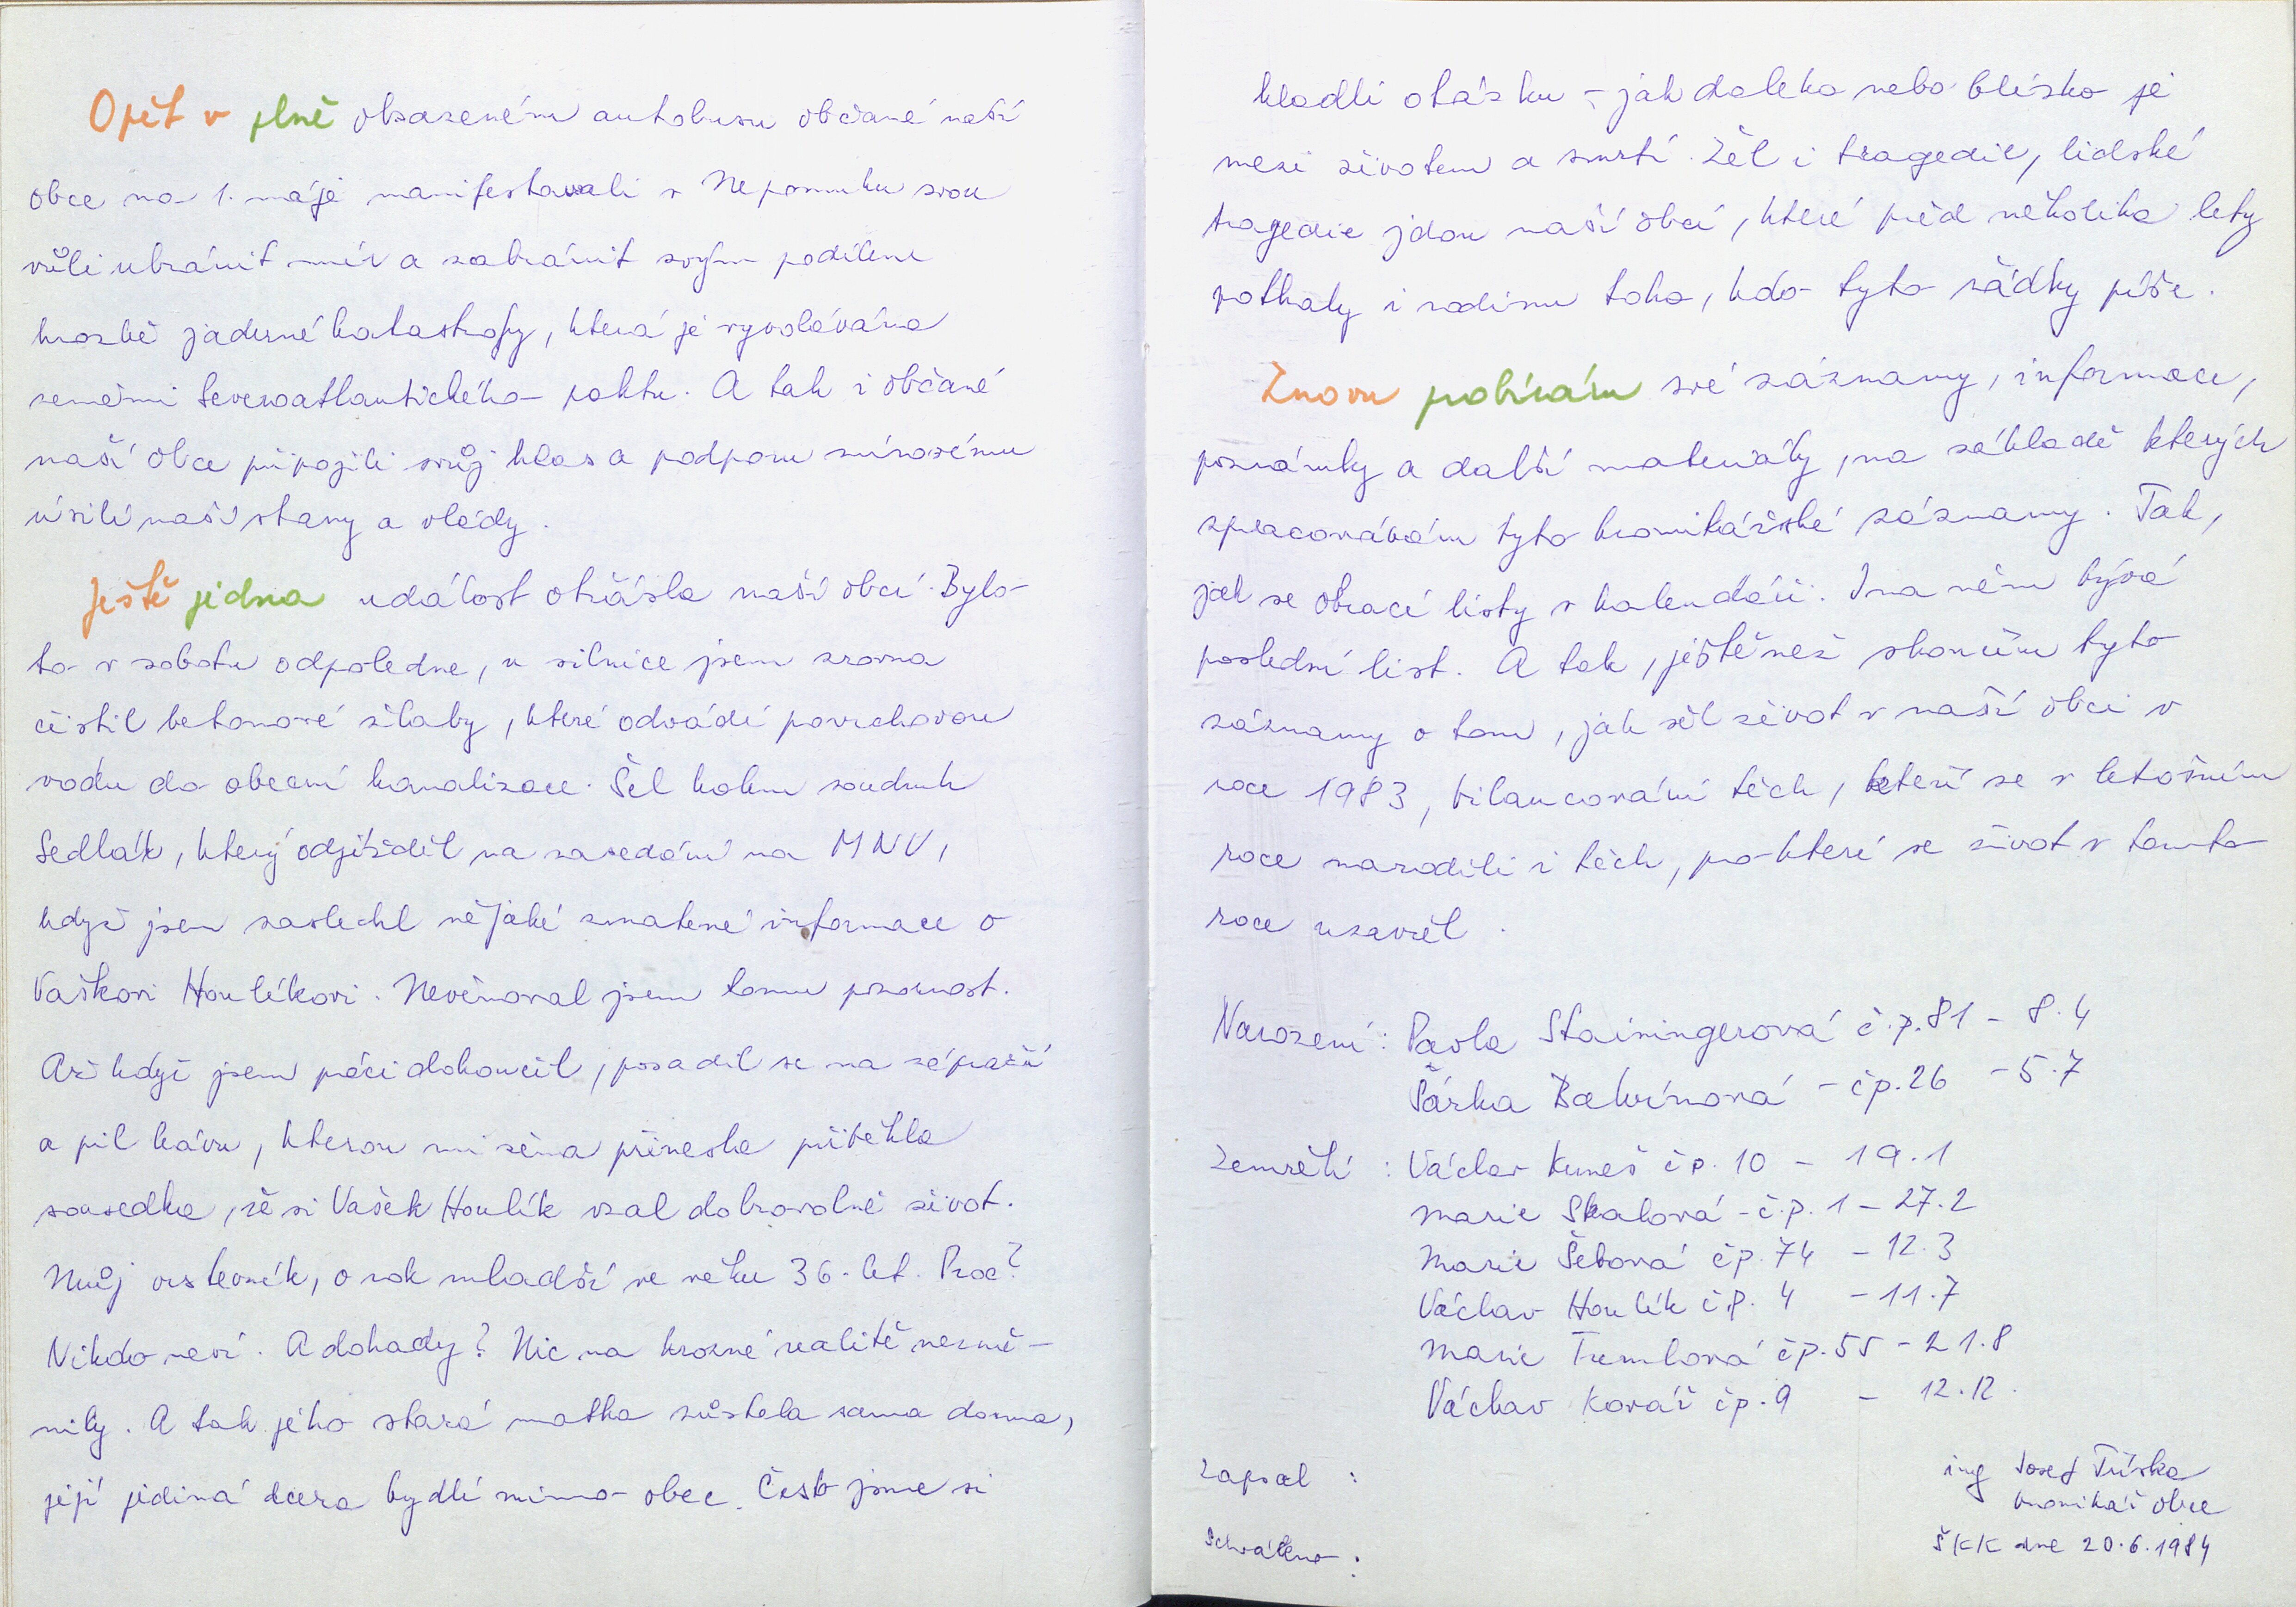 Opět v plně obsazeném autobusu občané naší
obce na 1. máje manifestovali v Nepomuku svou
vůli ubránit mír a zabránit svým podílem
hrozbě jaderné katastrofy, která je vyvolávána
zeměmi Severoatlantického paktu. A tak i občané
naší obce připojili svůj hlas a podporu mírovému
úsilí naší strany a vlády.
Ještě jedna událost otřásla naší obcí. Bylo
to v sobotu odpoledne, u silnice jsem zrovna
čistil betonové žlaby, které odvádí povrchovou
vodu do obecní kanalizace. Šel kolem soudruh
Sedlák, který odjížděl na zasedání na MNV,
když jsem zaslechl nějaké zmatené informace o
Vaškovi Houlíkovi. Nevěnoval jsem tomu pozornost.
Až když jsem práci dokončil, posadil se na zápraží
a pil kávu, kterou mi žena přinesla přiběhla
sousedka, že si Vašek Houlík vzal dobrovolně život.
Můj vrstevník, o rok mladší ve věku 36-let. Proč?
Nikdo neví. A dohady? Nic na hrozné realitě nezmě-
nily. A tak jeho stará matka zůstala sama doma,
její jediná dcera bydlí mimo obec. Často jsme si
kladli otázku – jak daleko nebo blízko je
mezi životem a smrtí. Žel i tragedie, lidské
tragedie jdou naší obcí, které před několika lety
potkaly i rodinu toho, kdo tyto řádky píše.
Znovu probírám své záznamy, informace,
poznámky a další materiály, na základě kterých
zpracovávám tyto kronikářské záznamy. Tak,
jak se obrací listy v kalendáři. I na něm bývá
poslední list. A tak, ještě než skončím tyto
záznamy o tom, jak šel život v naší obci v
roce 1983, bilancování těch, kteří se v letošním
roce narodili i těch, po které se život v tomto
roce uzavřel.
Narození: Pavla Stainingerová č.p. 81 – 8.4
Šárka Balvínová – čp. 26 – 5.7
Zemřelí: Václav Kuneš čp. 10 – 19.1
Marie Skalová – č.p. 1 – 27.2
Marie Šebová čp. 74 – 12.3
Václav Houlík č.p. 4 – 11.7
Marie Tumlová čp. 55 – 21.8
Václav Kovář čp. 9 – 12.12.
Zapsal: ing Josef Tříska
kronikář obce
Schváleno: ŠKK dne 20.6.1984